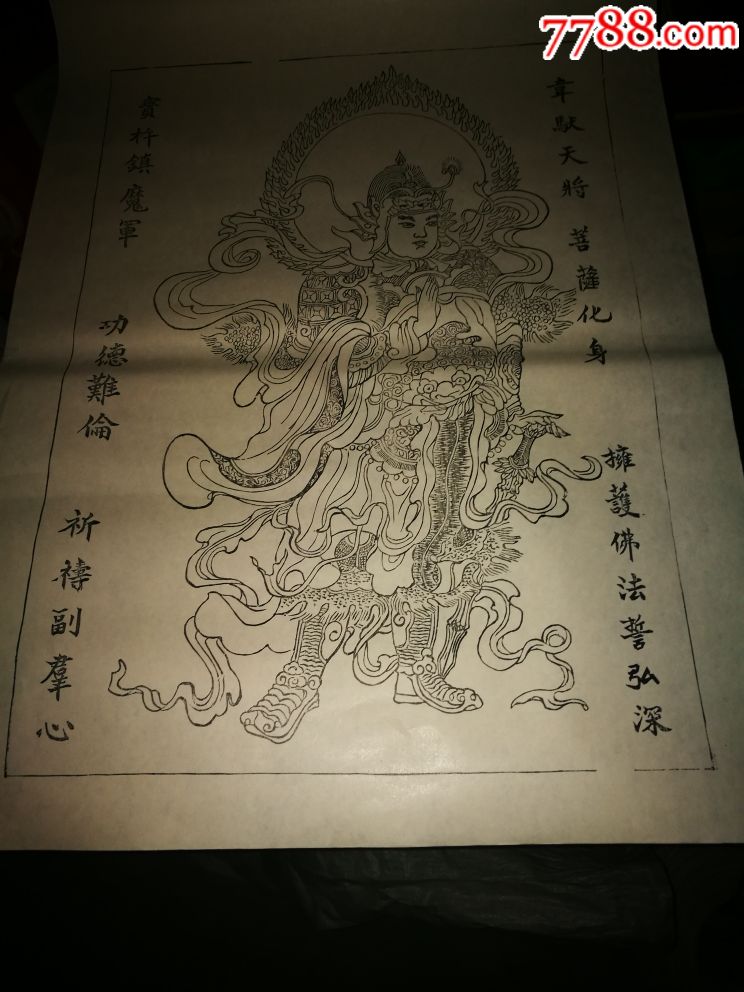 7788.com
韋馱天將
菩薩化身
擁護佛法誓弘深
寳杵鎮魔軍
功德難倫
祈禱副羣心